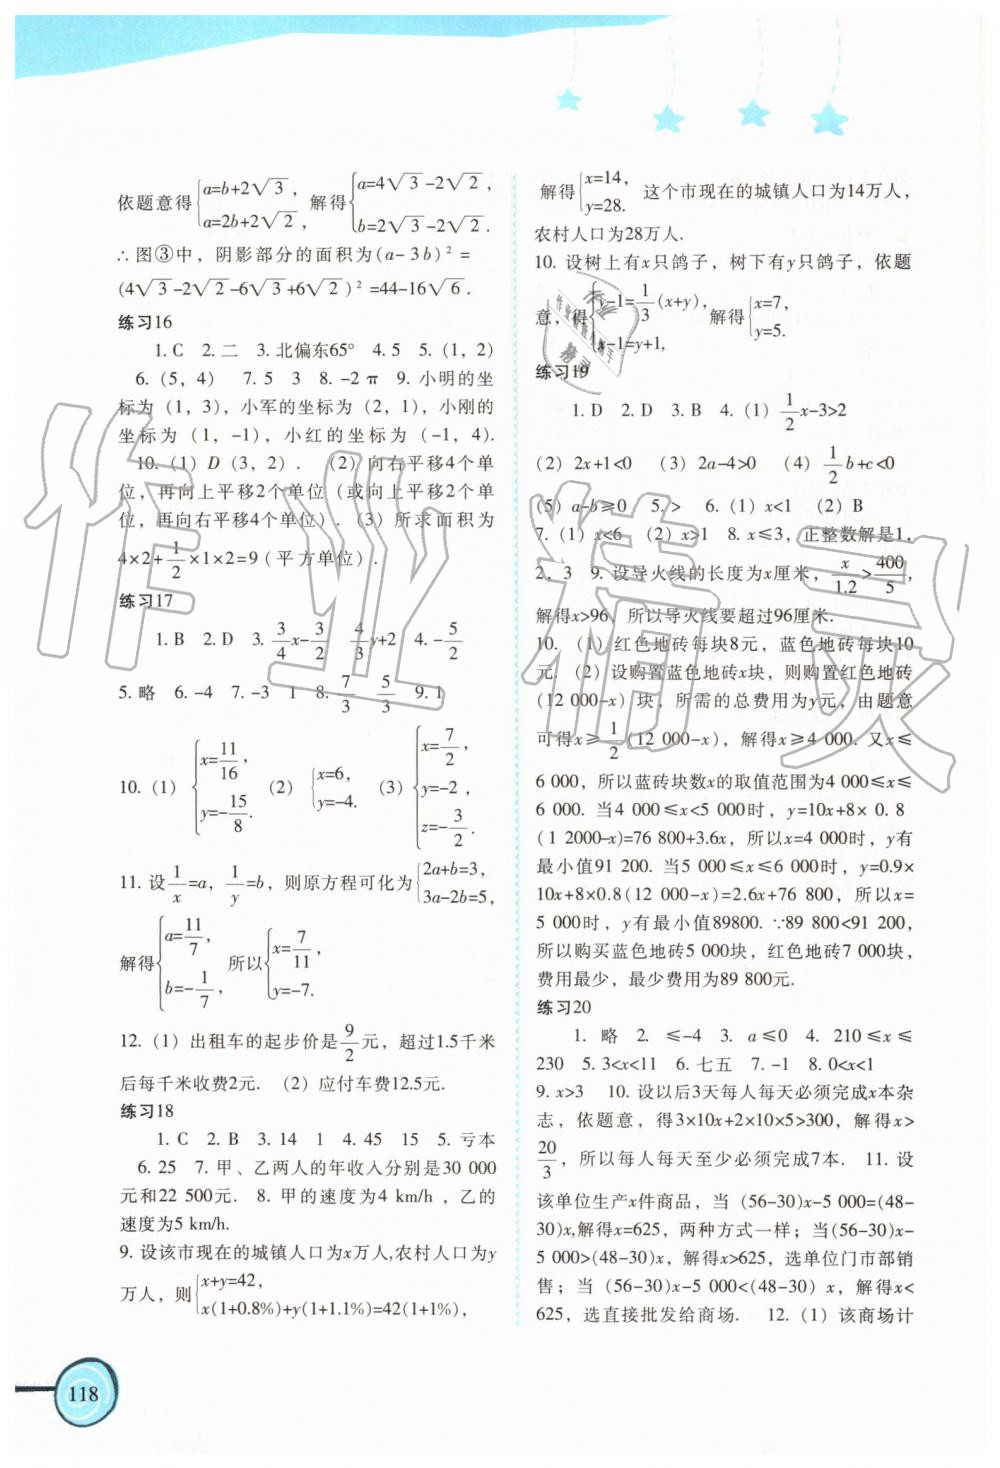 依题意得{a=b+2√3, a=2b+2√2, 解得{a=4√3-2√2, b=2√3-2√2.
∴图③中，阴影部分的面积为(a-3b)²=
(4√3-2√2-6√3+6√2)²=44-16√6.
练习16
1. C 2. 二 3. 北偏东65° 4. 5 5.（1，2）
6.（5，4） 7. 5 3 8. -2π 9. 小明的坐
标为（1，3），小军的坐标为（2，1），小刚的
坐标为（1，-1），小红的坐标为（-1，4）.
10.（1）D（3，2）.（2）向右平移4个单
位，再向上平移2个单位（或向上平移2个单
位，再向右平移4个单位）.（3）所求面积为
4×2+1/2×1×2=9（平方单位）.
练习17
1. B 2. D 3. 3/4x-3/2 4/3y+2 4. -5/2
5. 略 6. -4 7. -3 1 8. 7/3 5/3 9. 1
10.（1）{x=11/16, y=-15/8.（2）{x=6, y=-4.（3）{x=7/2, y=-2, z=-3/2.
11. 设1/x=a，1/y=b，则原方程可化为{2a+b=3, 3a-2b=5,
解得{a=11/7, b=-1/7, 所以{x=7/11, y=-7.
12.（1）出租车的起步价是9/2元，超过1.5千米
后每千米收费2元.（2）应付车费12.5元.
练习18
1. C 2. B 3. 14 1 4. 45 15 5. 亏本
6. 25 7. 甲、乙两人的年收入分别是30 000
元和22 500元. 8. 甲的速度为4 km/h，乙的
速度为5 km/h.
9. 设该市现在的城镇人口为x万人,农村人口为y
万人，则{x+y=42, x(1+0.8%)+y(1+1.1%)=42(1+1%),
118
解得{x=14, y=28. 这个市现在的城镇人口为14万人，
农村人口为28万人.
10. 设树上有x只鸽子，树下有y只鸽子，依题
意，得{y-1=1/3(x+y), x-1=y+1, 解得{x=7, y=5.
练习19
1. D 2. D 3. B 4.（1）1/2x-3>2
（2）2x+1<0 （3）2a-4>0 （4）1/2b+c<0
（5）a-b≥0 5. > 6.（1）x<1 （2）B
7.（1）x<6 （2）x>1 8. x≤3，正整数解是1，
2，3 9. 设导火线的长度为x厘米，x/1.2>400/5，
解得x>96，所以导火线要超过96厘米.
10.（1）红色地砖每块8元，蓝色地砖每块10
元.（2）设购置蓝色地砖x块，则购置红色地砖
(12 000-x)块，所需的总费用为y元，由题意
可得x≥1/2(12 000-x)，解得x≥4 000. 又x≤
6 000，所以蓝砖块数x的取值范围为4 000≤x≤
6 000. 当4 000≤x<5 000时，y=10x+8×0. 8
(1 2000-x)=76 800+3.6x，所以x=4 000时，y有
最小值91 200. 当5 000≤x≤6 000时，y=0.9×
10x+8×0.8(12 000-x)=2.6x+76 800，所以x=
5 000时，y有最小值89800. ∵89 800<91 200，
所以购买蓝色地砖5 000块，红色地砖7 000块，
费用最少，最少费用为89 800元.
练习20
1. 略 2. ≤-4 3. a≤0 4. 210≤x≤
230 5. 3<x<11 6. 七五 7. -1 8. 0<x<1
9. x>3 10. 设以后3天每人每天必须完成x本杂
志，依题意，得3×10x+2×10×5>300，解得x>
20/3，所以每人每天至少必须完成7本. 11. 设
该单位生产x件商品，当（56-30)x-5 000=(48-
30)x,解得x=625，两种方式一样；当(56-30)x-
5 000>(48-30)x，解得x>625，选单位门市部销
售；当（56-30)x-5 000<(48-30) x，解得x<
625，选直接批发给商场. 12.（1）该商场计
作业精灵